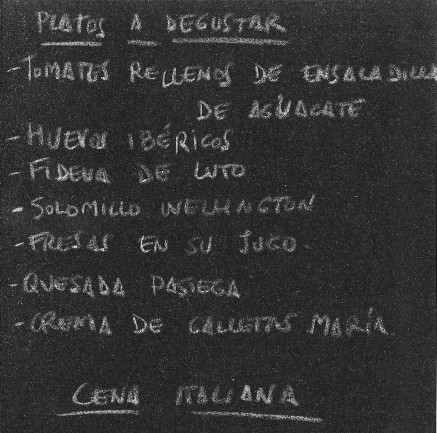 PLATOS A DEGUSTAR
-TOMATES RELLENOS DE ENSALADILLA
DE AGUACATE
-HUEVOS IBÉRICOS
-FIDEUA DE LUTO
-SOLOMILLO WELLINGTON
-FRESAS EN SU JUGO.
-QUESADA PASIEGA
-CREMA DE GALLETAS MARÍA
CENA ITALIANA